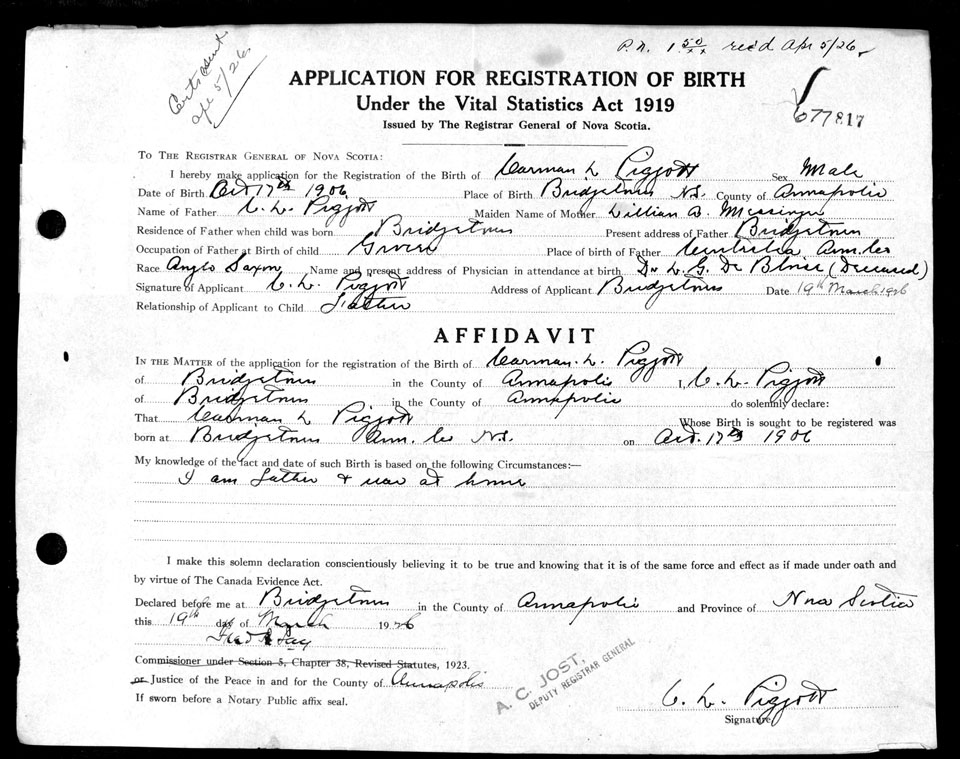 P.N. 1.50 rec'd Apr 5/26
Cert sent
Apr 5/26.
APPLICATION FOR REGISTRATION OF BIRTH
Under the Vital Statistics Act 1919
Issued by The Registrar General of Nova Scotia.
677817
TO THE REGISTRAR GENERAL OF NOVA SCOTIA:
I hereby make application for the Registration of the Birth of Carman L Piggott Sex Male
Date of Birth Oct 17th 1906 Place of Birth Bridgetown N.S. County of Annapolis
Name of Father C. L. Piggott Maiden Name of Mother Lillian B. Messinger
Residence of Father when child was born Bridgetown Present address of Father Bridgetown
Occupation of Father at Birth of child Grocer Place of birth of Father Ann Co
Race Anglo Saxon Name and present address of Physician in attendance at birth Dr L. G. De Bloise (Deceased)
Signature of Applicant C. L. Piggott Address of Applicant Bridgetown Date 19th March 1926
Relationship of Applicant to Child Father
AFFIDAVIT
IN THE MATTER of the application for the registration of the Birth of Carman. L. Piggott
of Bridgetown in the County of Annapolis I, C. L. Piggott
of Bridgetown in the County of Annapolis do solemnly declare:
That Carman L Piggott Whose Birth is sought to be registered was
born at Bridgetown Ann. Co N.S. on Oct. 17th 1906
My knowledge of the fact and date of such Birth is based on the following Circumstances:—
I am Father & was at home
I make this solemn declaration conscientiously believing it to be true and knowing that it is of the same force and effect as if made under oath and
by virtue of The Canada Evidence Act.
Declared before me at Bridgetown in the County of Annapolis and Province of Nova Scotia
this 19th day of March 1926
Commissioner under Section 5, Chapter 38, Revised Statutes, 1923.
or Justice of the Peace in and for the County of Annapolis
If sworn before a Notary Public affix seal.
A. C. JOST,
DEPUTY REGISTRAR GENERAL
C. L. Piggott
Signature